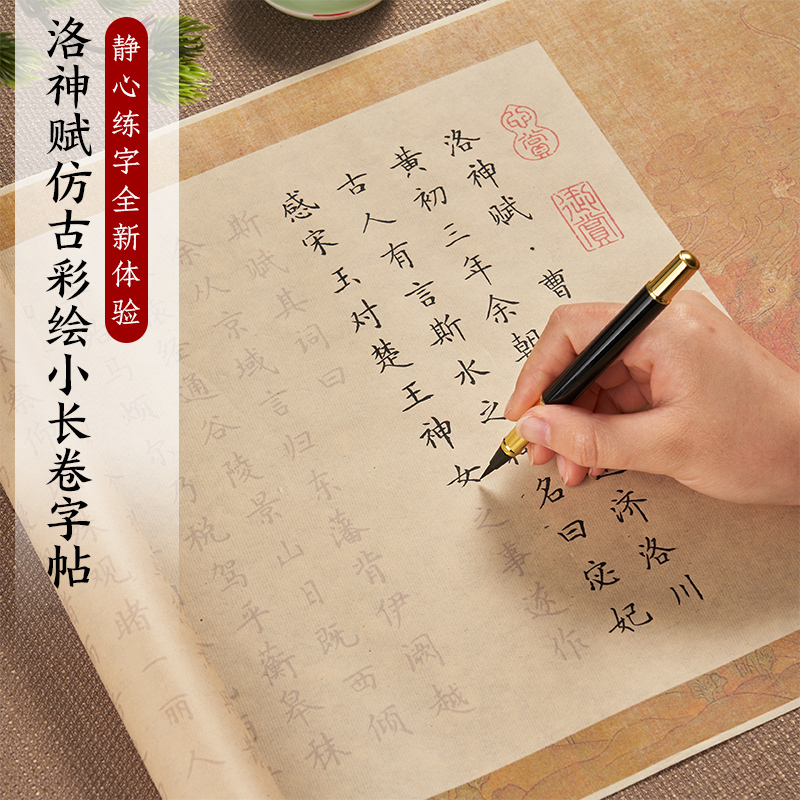 静心练字全新体验
洛神赋仿古彩绘小长卷字帖
御賞
洛神赋·曹
黄初三年余朝 济洛川
古人有言斯水之 名曰宓妃
感宋玉对楚王神女之事遂作
斯赋其词曰
余从京域言归东藩背伊阙越
经通谷陵景山日既西倾
马烦尔乃税驾乎蘅皋秣
睹一丽人